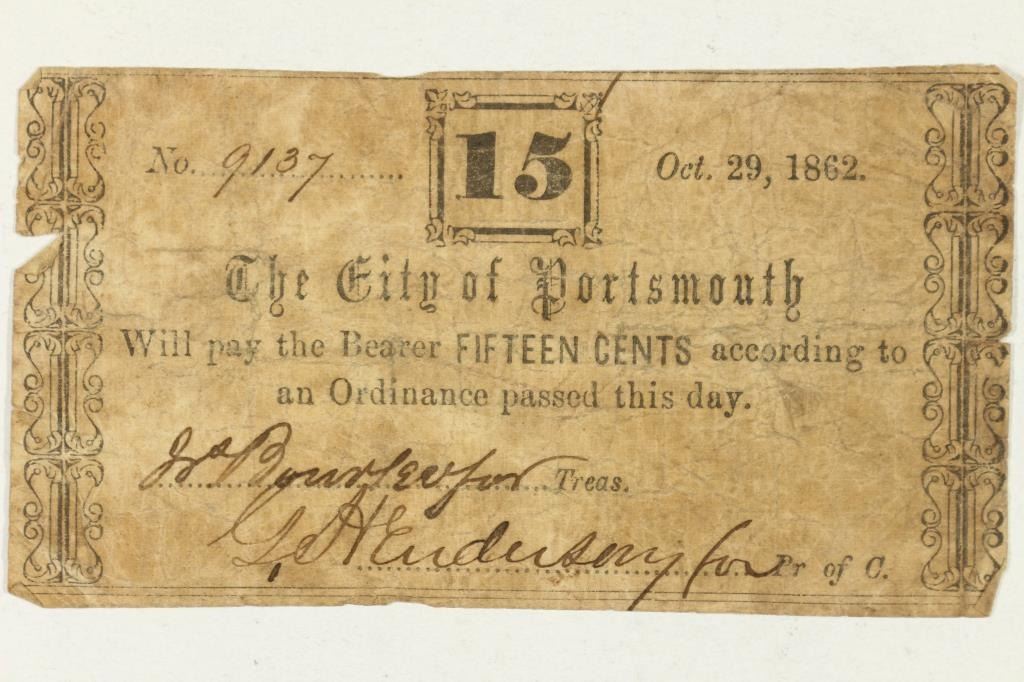 No. 9137
15
Oct. 29, 1862.
The City of Portsmouth
Will pay the Bearer FIFTEEN CENTS according to
an Ordinance passed this day.
for Treas.
Henderson for Pr of C.